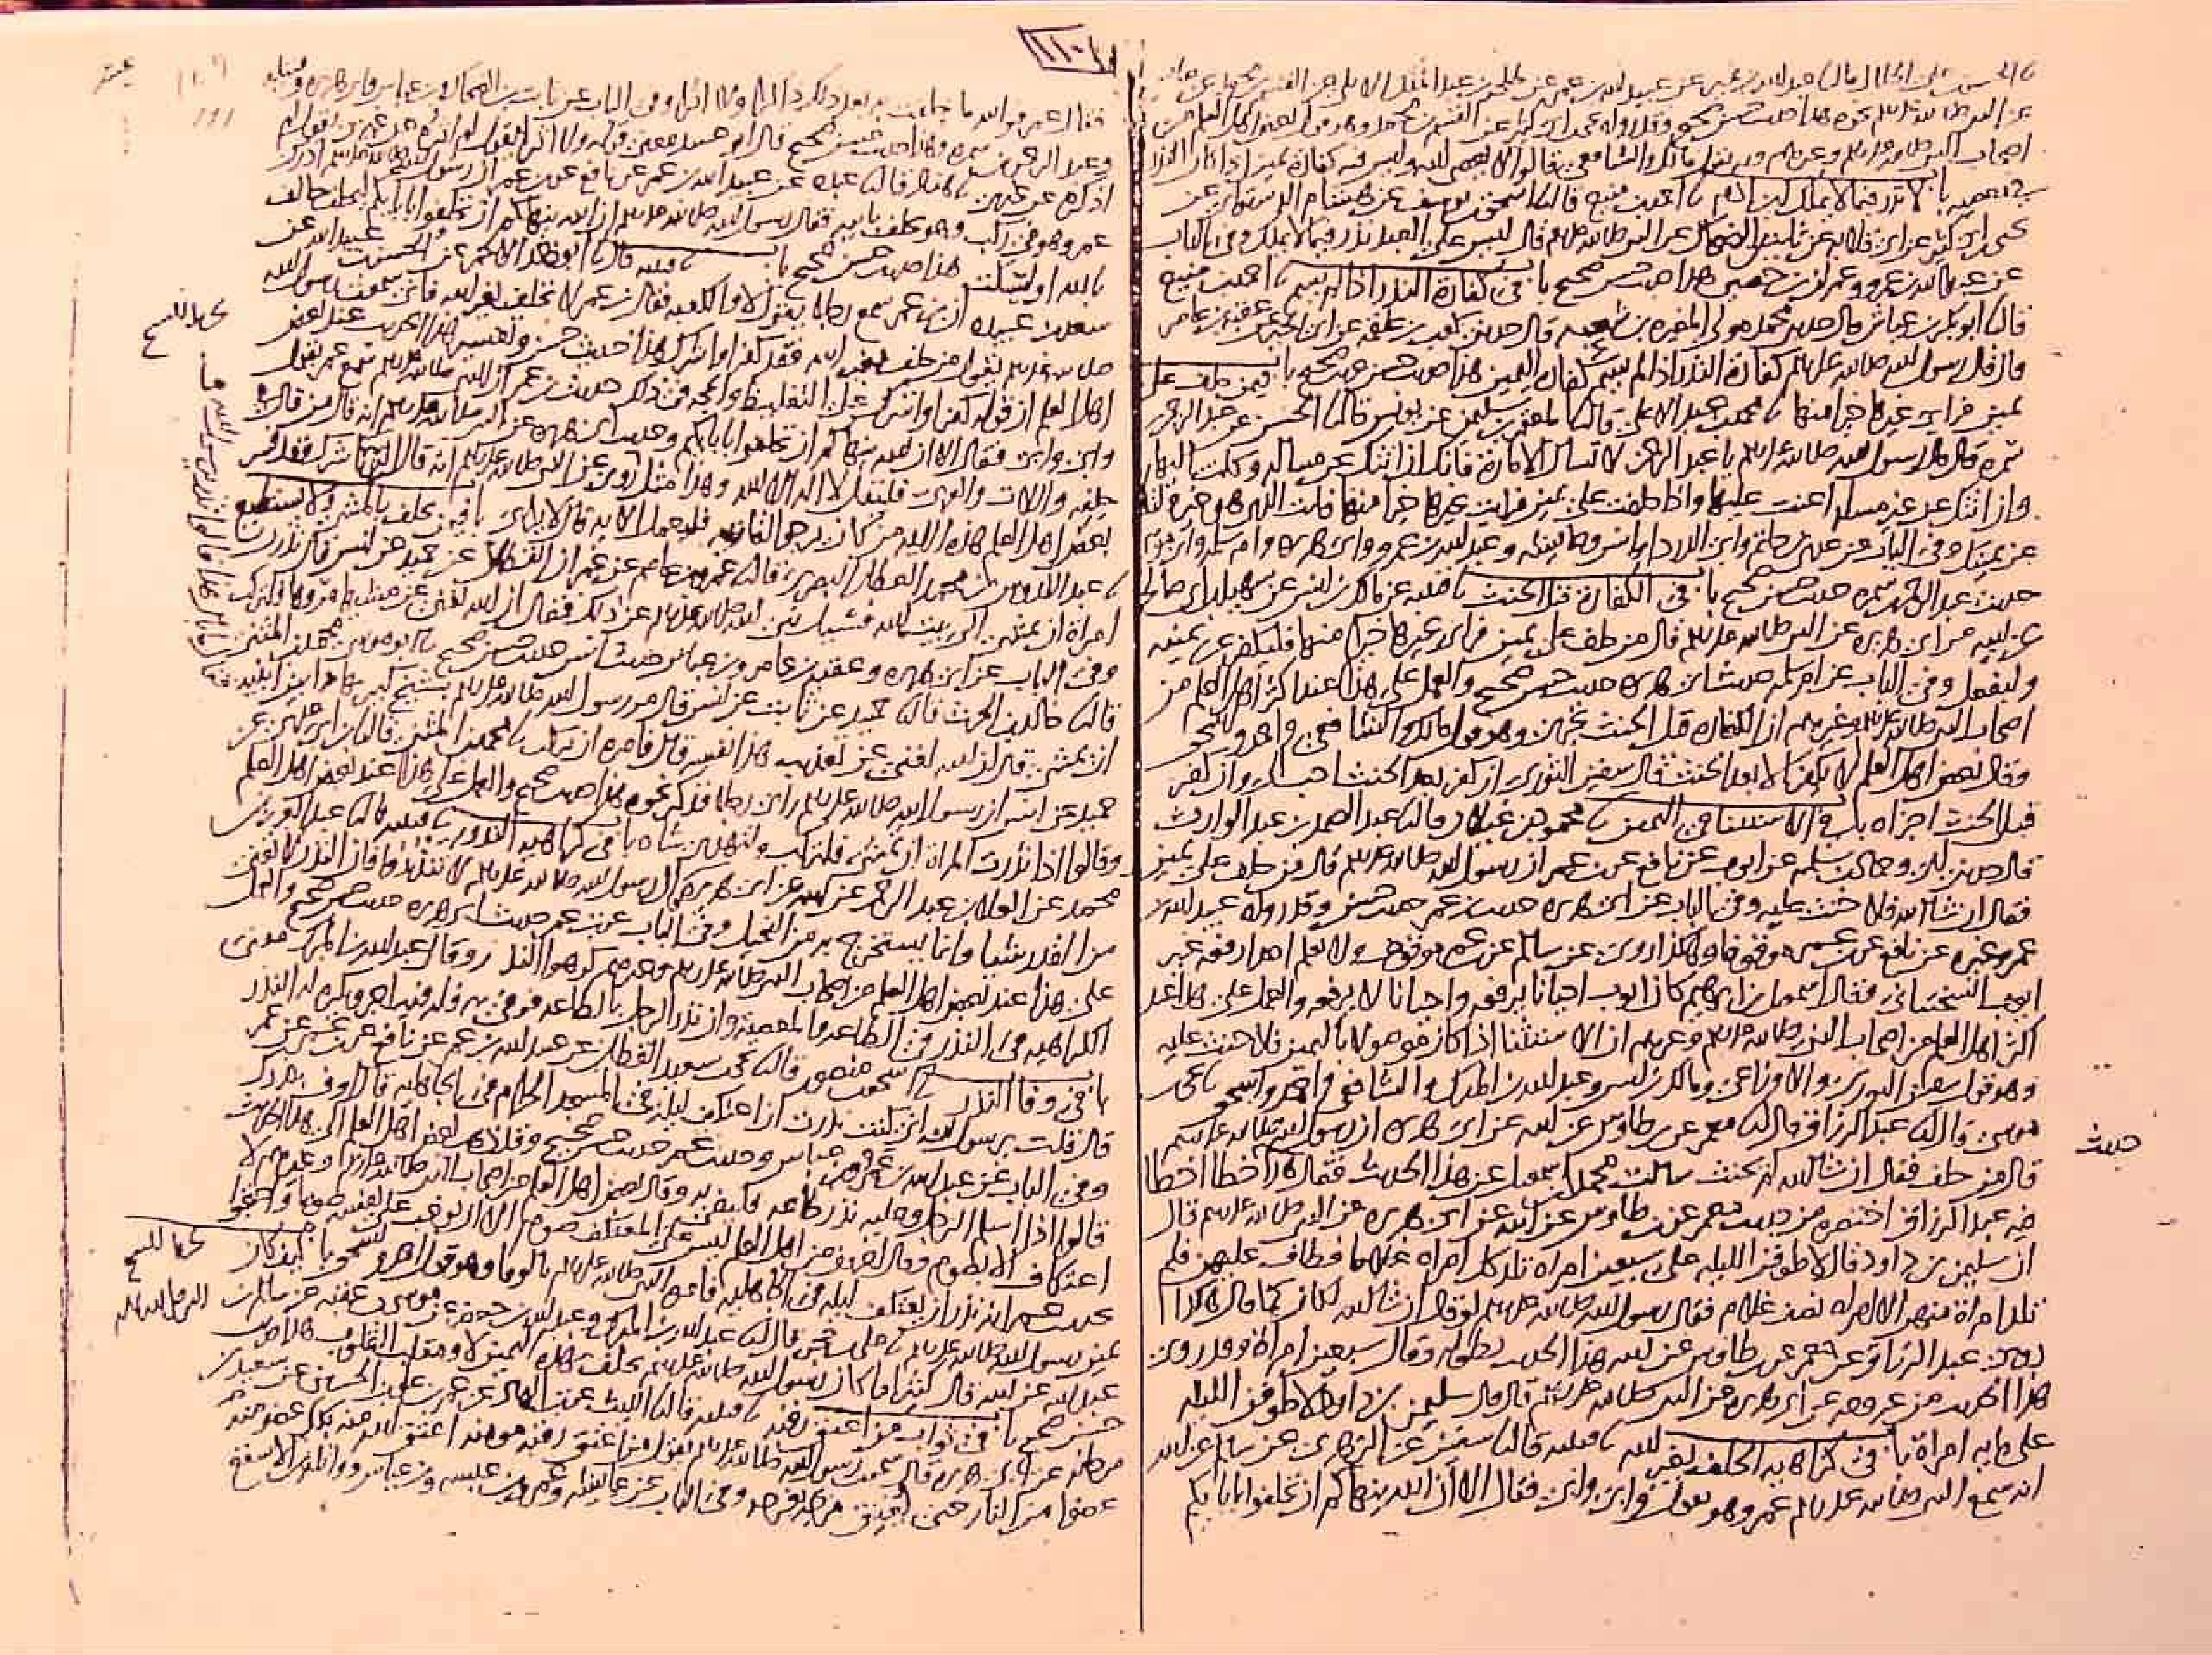 ١١٠
عن النبي صلى الله عليه وسلم نحوه هذا حديث
اصحاب النبي صلى الله عليه وسلم وغيرهم وبه يقول مالك والشافعي قالوا لا يعصي الله وليس فيه كفارة يمين اذا كان النذر
في معصية باب لا نذر فيما لا يملك ابن آدم احمد بن منيع قال اسحق بن يوسف عن هشام الدستوائي عن
يحيى بن ابي كثير عن ابي قلابة عن ثابت بن الضحاك عن النبي صلى الله عليه وسلم قال ليس على العبد نذر فيما لا يملك وفي الباب
عن عبد الله بن عمرو وعمران بن حصين هذا حديث حسن صحيح باب في كفارة النذر اذا لم يسم احمد بن منيع
قال ابو بكر بن عياش قال حدثني محمد مولى المغيرة بن شعبة قال حدثني كعب بن علقمة عن ابي الخير عن عقبة بن عامر
قال قال رسول الله صلى الله عليه وسلم كفارة النذر اذا لم يسم كفارة اليمين هذا حديث حسن صحيح باب فيمن حلف على
يمين فراى غيرها خيرا منها محمد بن عبد الاعلى قال المعتمر بن سليمن عن يونس قال الحسن عن عبد الرحمن بن
سمرة قال قال رسول الله صلى الله عليه وسلم يا عبد الرحمن لا تسال الامارة فانك ان اتتك عن مسالة وكلت اليها
وان اتتك عن غير مسالة اعنت عليها واذا حلفت على يمين فرايت غيرها خيرا منها فات الذي هو خير ولتكفر
عن يمينك وفي الباب عن عدي بن حاتم وابي الدرداء وانس وعايشة وعبد الله بن عمرو وابي هريرة وام سلمة وابي موسى
حديث عبد الرحمن بن سمرة حديث حسن صحيح باب في الكفارة قبل الحنث قتيبة عن مالك بن انس عن سهيل بن ابي صالح
عن ابيه عن ابي هريرة عن النبي صلى الله عليه وسلم قال من حلف على يمين فراى غيرها خيرا منها فليكفر عن يمينه
وليفعل وفي الباب عن ام سلمة حديث ابي هريرة حديث حسن صحيح والعمل على هذا عند اكثر اهل العلم من
اصحاب النبي صلى الله عليه وسلم وغيرهم ان الكفارة قبل الحنث تجزئ وهو قول مالك والشافعي واحمد واسحق
وقال بعض اهل العلم لا يكفر الا بعد الحنث قال سفين الثوري ان كفر بعد الحنث احب الي وان كفر
قبل الحنث اجزاه باب في الاستثنا في اليمين محمود بن غيلان قال عبد الصمد بن عبد الوارث
قال حدثني ابي وحماد بن سلمة عن ايوب عن نافع عن ابن عمر ان رسول الله صلى الله عليه وسلم قال من حلف على يمين
فقال ان شا الله فلا حنث عليه وفي الباب عن ابي هريرة حديث ابن عمر حديث حسن وقد رواه عبيد الله بن
عمر وغيره عن نافع عن ابن عمر موقوفا وهكذا روي عن سالم عن ابن عمر موقوفا ولا نعلم احدا رفعه غير
ايوب السختياني وقال اسمعيل بن ابرهيم كان ايوب احيانا يرفعه واحيانا لا يرفعه والعمل على هذا عند
اكثر اهل العلم من اصحاب النبي صلى الله عليه وسلم وغيرهم ان الاستثنا اذا كان موصولا باليمين فلا حنث عليه
وهو قول سفين الثوري والاوزاعي ومالك بن انس وعبد الله بن المبرك والشافعي واحمد واسحق يحيى بن
موسى قال عبد الرزاق قال معمر عن ابن طاوس عن ابيه عن ابي هريرة ان رسول الله صلى الله عليه وسلم
قال من حلف فقال ان شا الله لم يحنث سالت محمد بن اسمعيل عن هذا الحديث فقال هذا خطا اخطا
فيه عبد الرزاق اختصره من حديث معمر عن ابن طاوس عن ابيه عن ابي هريرة عن النبي صلى الله عليه وسلم قال
ان سليمن بن داود قال لاطوفن الليلة على سبعين امراة تلد كل امراة غلاما فطاف عليهن فلم
تلد امراة منهن الا امراة نصف غلام فقال رسول الله صلى الله عليه وسلم لو قال ان شا الله لكان كما قال هكذا
روي عن عبد الرزاق عن معمر عن ابن طاوس عن ابيه هذا الحديث بطوله وقال سبعين امراة وقد روي
هذا الحديث من غير وجه عن ابي هريرة عن النبي صلى الله عليه وسلم قال قال سليمن بن داود لاطوفن الليلة
على ماية امراة باب في كراهية الحلف بغير الله قتيبة قال سفين عن الزهري عن سالم عن ابيه
انه سمع النبي صلى الله عليه وسلم عمر وهو يقول وابي وابي فقال الا ان الله ينهاكم ان تحلفوا بابايكم
حديث
فقال عمر فوالله ما حلفت به بعد ذلك ذاكرا ولا اثرا وفي الباب عن ثابت بن الضحاك وابن عباس وابي هريرة وقتيلة
وعبد الرحمن بن سمرة وهذا حديث حسن صحيح قال ابو عبيد معنى قوله ولا اثرا يقول لم اثره عن غيري يقول لم
اذكره عن غيري هناد قال عبدة عن عبيد الله بن عمر عن نافع عن ابن عمر ان رسول الله صلى الله عليه وسلم ادرك
عمر وهو في ركب وهو يحلف بابيه فقال رسول الله صلى الله عليه وسلم ان الله ينهاكم ان تحلفوا بابايكم ليحلف حالف
بالله او ليسكت هذا حديث حسن صحيح باب قتيبة قال ابو خالد الاحمر عن الحسن بن عبيد الله عن
سعد بن عبيدة ان ابن عمر سمع رجلا يقول لا والكعبة فقال ابن عمر لا تحلف بغير الله فاني سمعت رسول الله
صلى الله عليه وسلم يقول من حلف بغير الله فقد كفر او اشرك هذا حديث حسن وتفسير هذا الحديث عند بعض
اهل العلم ان قوله كفر او اشرك على التغليظ والحجة في ذلك حديث ابن عمر ان النبي صلى الله عليه وسلم سمع عمر يقول
وابي وابي فقال الا ان الله ينهاكم ان تحلفوا بابايكم وحديث ابي هريرة عن النبي صلى الله عليه وسلم انه قال من قال في
حلفه واللات والعزى فليقل لا اله الا الله وهذا مثل ما روي عن النبي صلى الله عليه وسلم انه قال الريا شرك فقد فسر
بعض اهل العلم هذه الاية من كان يرجو لقا ربه فليعمل الاية قال لا يرائي باب فيمن يحلف بالمشي ولا يستطيع
عبد القدوس بن محمد العطار البصري قال عمرو بن عاصم عن عمران القطان عن حميد عن انس قال نذرت
امراة ان تمشي الى بيت الله فسئل نبي الله صلى الله عليه وسلم عن ذلك فقال ان الله لغني عن مشيها مروها فلتركب
وفي الباب عن ابي هريرة وعقبة بن عامر وابن عباس حديث انس حديث حسن صحيح ابو موسى محمد بن المثنى
قال خالد بن الحرث قال حميد عن ثابت عن انس قال مر رسول الله صلى الله عليه وسلم بشيخ كبير يهادى بين ابنيه
ان يمشي قال ان الله لغني عن تعذيب هذا نفسه قال فامره ان يركب محمد بن المثنى قال ابن ابي عدي عن
حميد عن انس ان رسول الله صلى الله عليه وسلم راى رجلا فذكر نحوه هذا حديث صحيح والعمل على هذا عند بعض اهل العلم
وقالوا اذا نذرت المراة ان تمشي فلتركب ولتهد شاة باب في كراهية النذور قتيبة قال عبد العزيز بن
محمد عن العلا بن عبد الرحمن عن ابيه عن ابي هريرة قال قال رسول الله صلى الله عليه وسلم لا تنذروا فان النذر لا يغني
من القدر شيا وانما يستخرج به من البخيل وفي الباب عن ابن عمر حديث ابي هريرة حديث حسن صحيح والعمل
على هذا عند بعض اهل العلم من اصحاب النبي صلى الله عليه وسلم وغيرهم كرهوا النذر وقال عبد الله بن المبرك معنى
الكراهية في النذر في الطاعة والمعصية وان نذر الرجل بالطاعة فوفى به فله فيه اجر ويكره له النذر
باب في وفا النذر اسحق بن منصور قال يحيى بن سعيد القطان عن عبيد الله بن عمر عن نافع عن ابن عمر عن عمر
قال قلت يرسول الله اني كنت نذرت ان اعتكف ليلة في المسجد الحرام في الجاهلية قال اوف بنذرك
وفي الباب عن عبد الله بن عمرو وابن عباس وحديث عمر حديث حسن صحيح وقد ذهب بعض اهل العلم الى هذا الحديث
قالوا اذا اسلم الرجل وعليه نذر طاعة فليف به وقال بعض اهل العلم من اصحاب النبي صلى الله عليه وسلم وغيرهم لا
اعتكاف الا بصوم وقال اخرون من اهل العلم ليس على المعتكف صوم الا ان يوجب على نفسه صوما واحتجوا
بحديث عمر انه نذر ان يعتكف ليلة في الجاهلية فامره النبي صلى الله عليه وسلم بالوفا وهو قول احمد واسحق باب كيف كان
يمين رسول الله صلى الله عليه وسلم علي بن حجر قال عبد الله بن المبرك وعبد الله بن جعفر عن موسى بن عقبة عن سالم بن
عبد الله عن ابيه قال كثيرا ما كان رسول الله صلى الله عليه وسلم يحلف بهذه اليمين لا ومقلب القلوب هذا حديث
حسن صحيح باب في ثواب من اعتق رقبة قتيبة قال الليث عن ابن الهاد عن عمر بن علي بن الحسين عن سعيد بن
مرجانة عن ابي هريرة قال سمعت رسول الله صلى الله عليه وسلم يقول من اعتق رقبة مومنة اعتق الله منه بكل عضو منه
عضوا من النار حتى يعتق فرجه بفرجه وفي الباب عن عايشة وعمرو بن عبسة وابن عباس وواثلة بن الاسقع